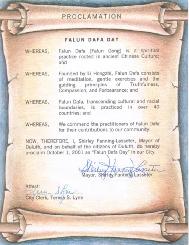 PROCLAMATION
FALUN DAFA DAY
WHEREAS, Falun Dafa (Falun Gong) is a spiritual
practice rooted in ancient Chinese Culture;
and
WHEREAS, Founded by Li Hongzhi, Falun Dafa consists
of meditation, gentle exercises and the
guiding principles of Truthfulness,
Compassion, and Forbearance; and
WHEREAS, Falun Dafa, transcending cultural and racial
boundaries, is practiced in over 40
countries; and
WHEREAS, We commend the practitioners of Falun Dafa
for their contributions to our community.
NOW, THEREFORE, I, Shirley Fanning-Lasseter, Mayor of
Duluth, and on behalf of the citizens of Duluth, do hereby
proclaim October 1, 2001 as "Falun Dafa Day" in our City.
Mayor, Shirley Fanning-Lasseter
Attest:
City Clerk, Teresa S. Lynn